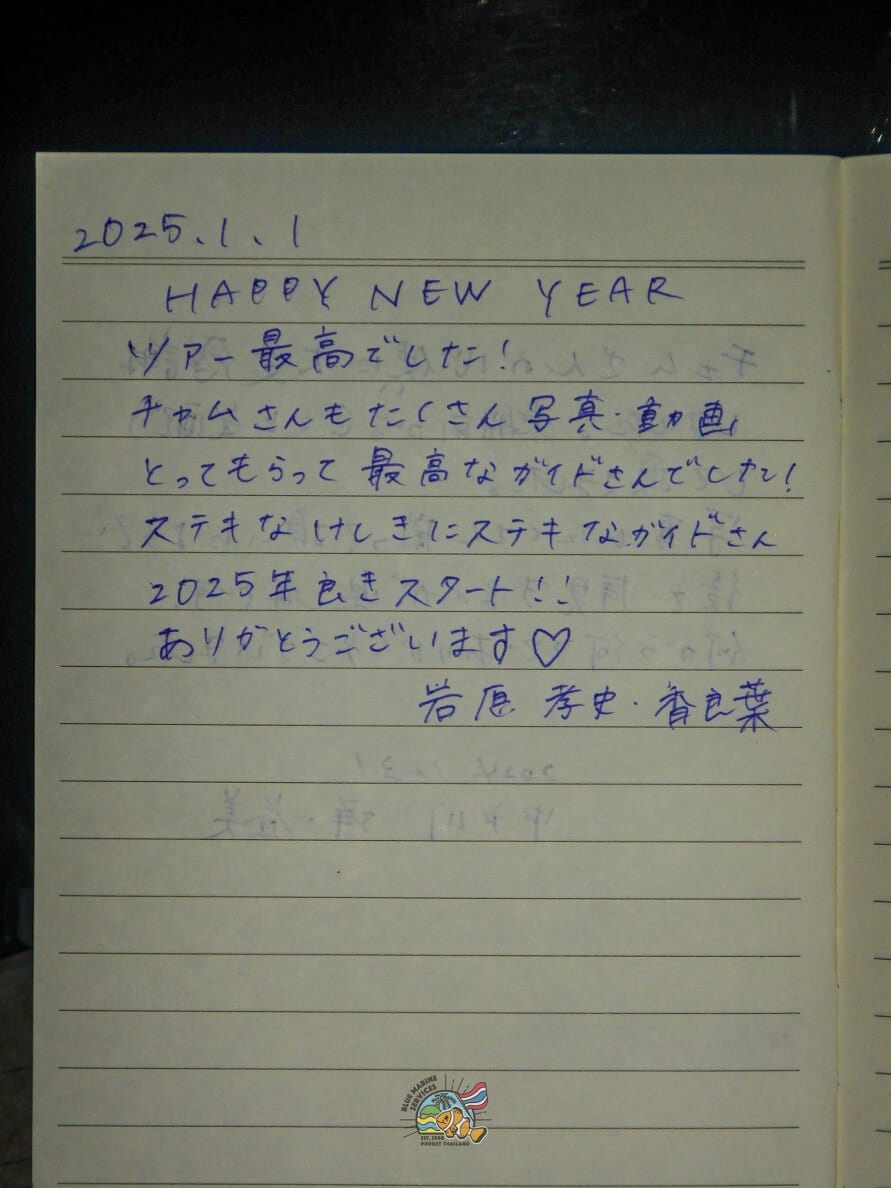 2025.1.1
HAPPY NEW YEAR
ツアー最高でした!
チャムさんもたくさん写真・動画
とってもらって最高なガイドさんでした!
ステキなけしきにステキなガイドさん
2025年良きスタート!!
ありがとうございます♡
岩原 孝史・香良葉
BLUE MARINE SERVICES
EST. 2008
PHUKET THAILAND